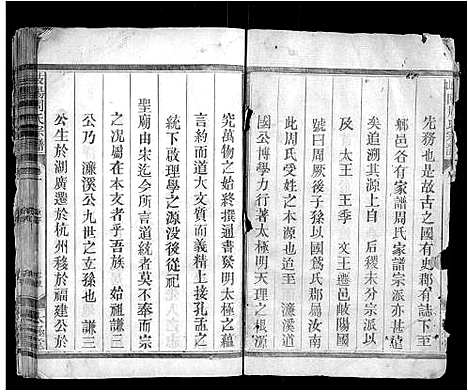 先務也是故古之國有史郡有誌下至
鄉邑各有家譜周氏家譜宗派亦甚遠
矣追溯其源上自 后稷未分宗派以
及 太王 王季 文王遷邑岐陽國
號曰周厥後子孫以國為氏郡屬汝南
此周氏受姓之本源也迨至 濂溪道
國公博學力行著太極明天理之根源
究萬物之始終撰通書發明太極之蘊
言約而道大文質而義精上接孔孟之
統下啟理學之源没後從祀
聖廟由宋迄今所言道統者莫不奉而宗
之况屬在本支者乎吾族 始祖謙三
公乃 濂溪公九世之玄孫也 謙三
公生於湖廣遷於杭州移於福建公於
周氏宗譜